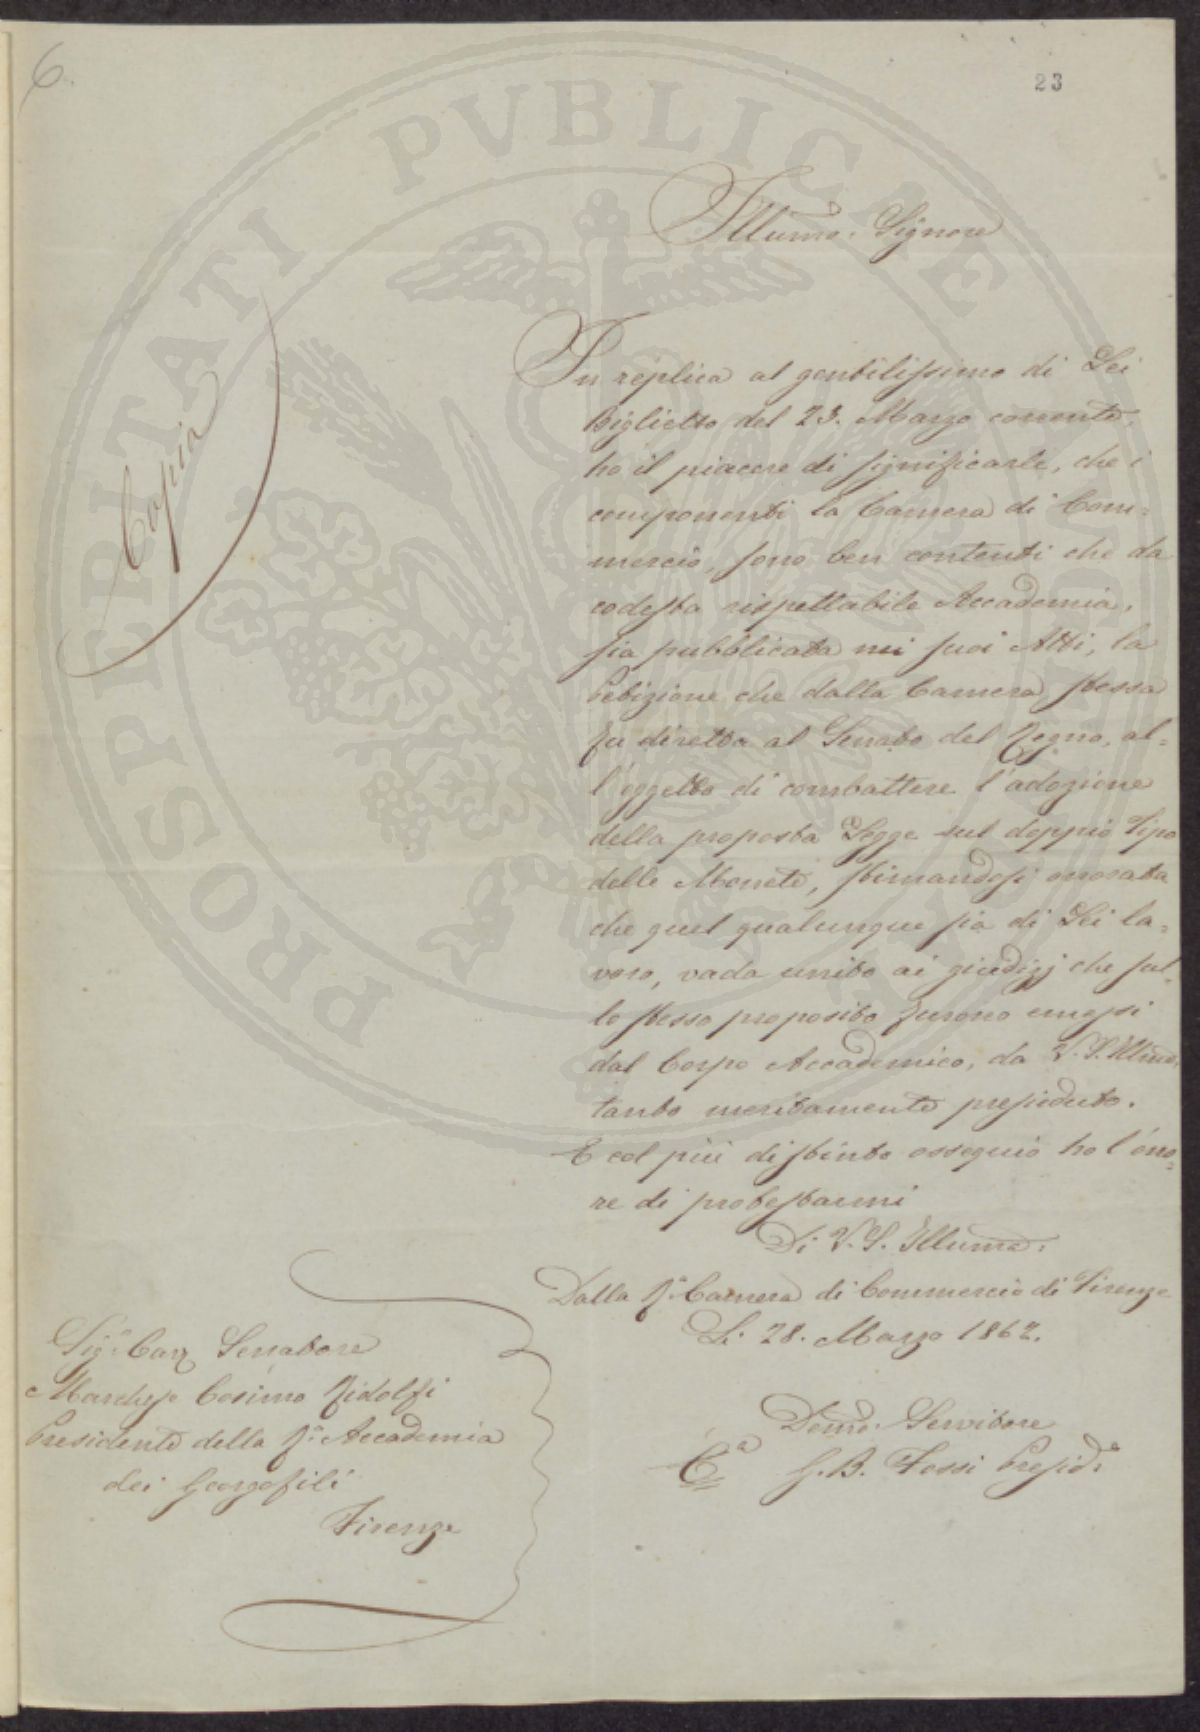 6.
23
PROSPERITATI PVBLICAE AVGENDAE
Copia
Illumo. Signore
In replica al gentilissimo di Lei
Biglietto del 23. Marzo corrente,
ho il piacere di significarle, che i
componenti la Camera di Com=
mercio, sono ben contenti che da
codesta rispettabile Accademia,
sia pubblicata nei suoi Atti, la
Petizione che dalla Camera stessa
fu diretta al Senato del Regno, al=
l'oggetto di combattere l'adozione
della proposta Legge sul doppio Tipo
delle Monete, stimandosi onorata
che quel qualunque sia di Lei la=
voro, vada unito ai giudizj che sul=
lo stesso proposito furono emessi
dal Corpo Accademico, da V. S. Illma.
tanto meritamente presieduto.
E col più distinto ossequio ho l'ono=
re di protestarmi
Di V. S. Illuma.
Dalla Ra. Camera di Commercio di Firenze
Li 28. Marzo 1862.
Sigr. Cav. Senatore
Marchese Cosimo Ridolfi
Presidente della Ra. Accademia
dei Georgofili
Firenze
Devmo. Servitore
G. B. Fossi Preside.